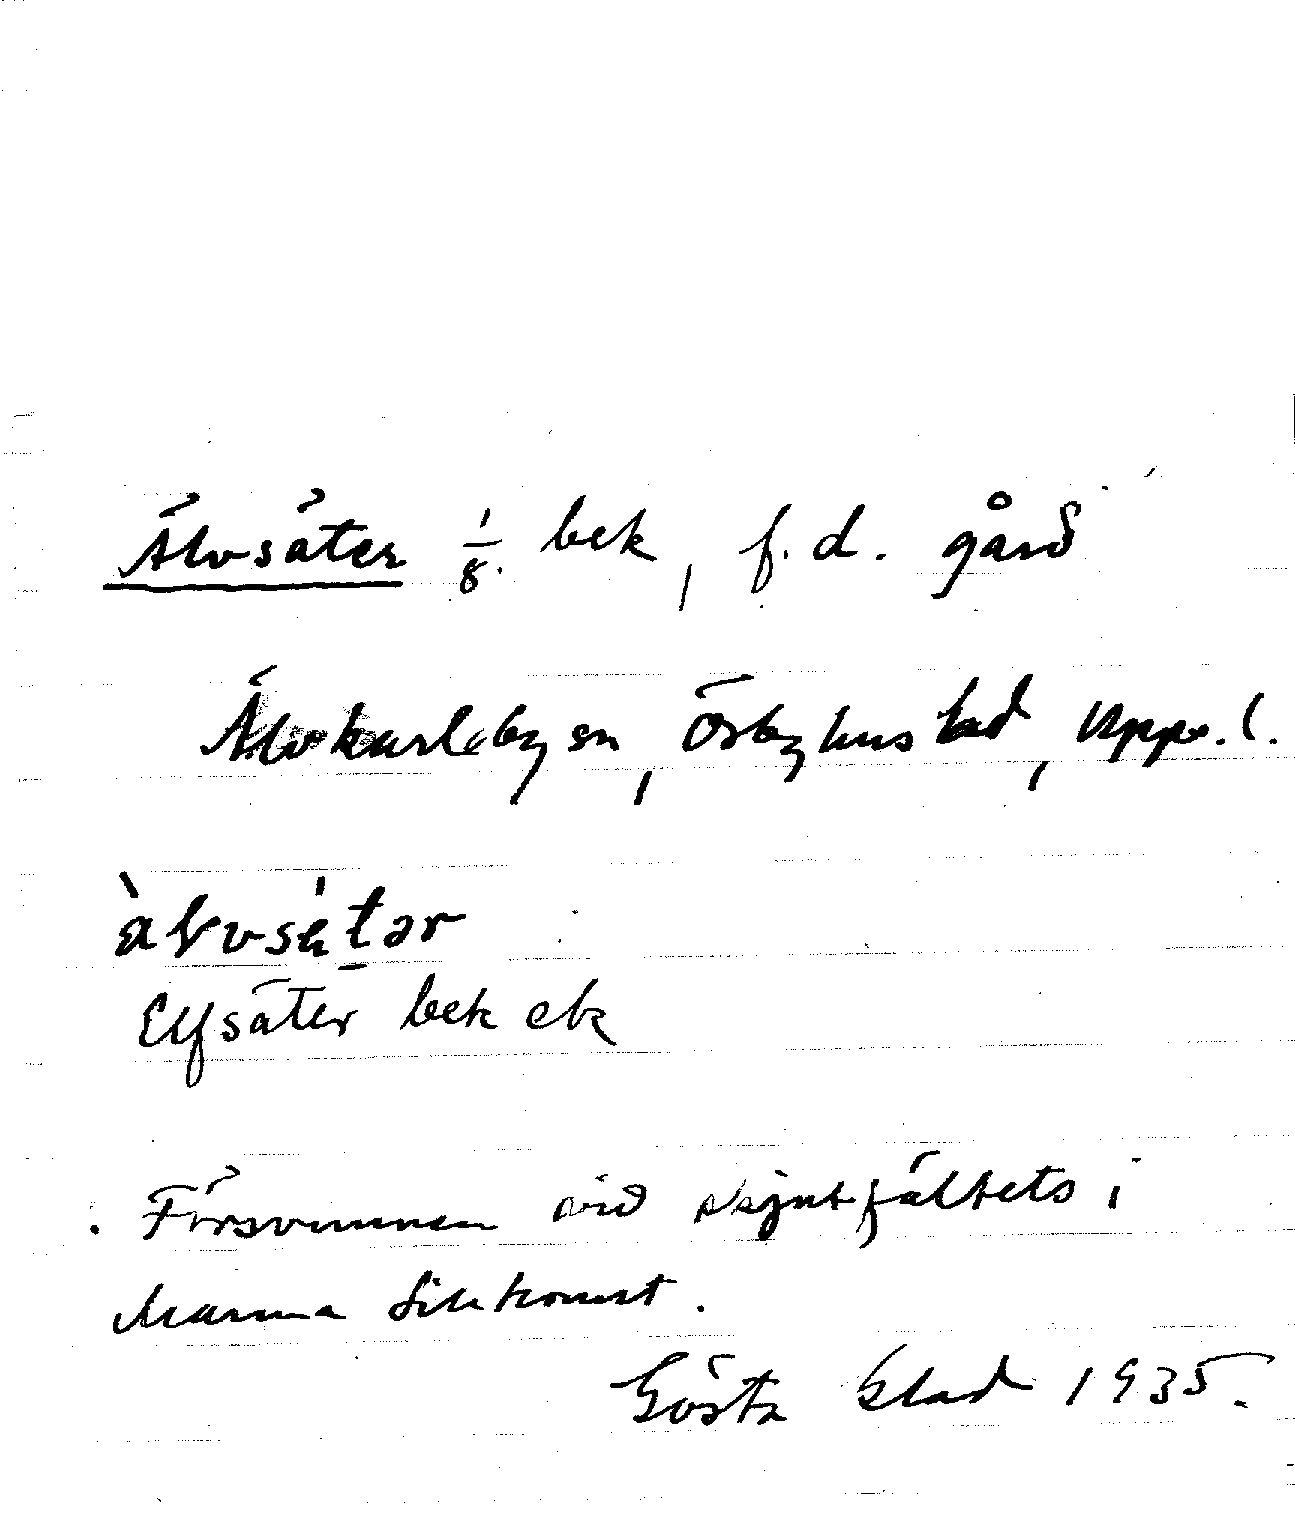 Älvsäter 1/8 bek, f.d. gård
Älvkarleby sn, Örbyhus hd, Uppl.
Elfsäter bek ek
Försvunnen vid skjutfältets i
Marma tillkomst.
Gösta Blad 1935.